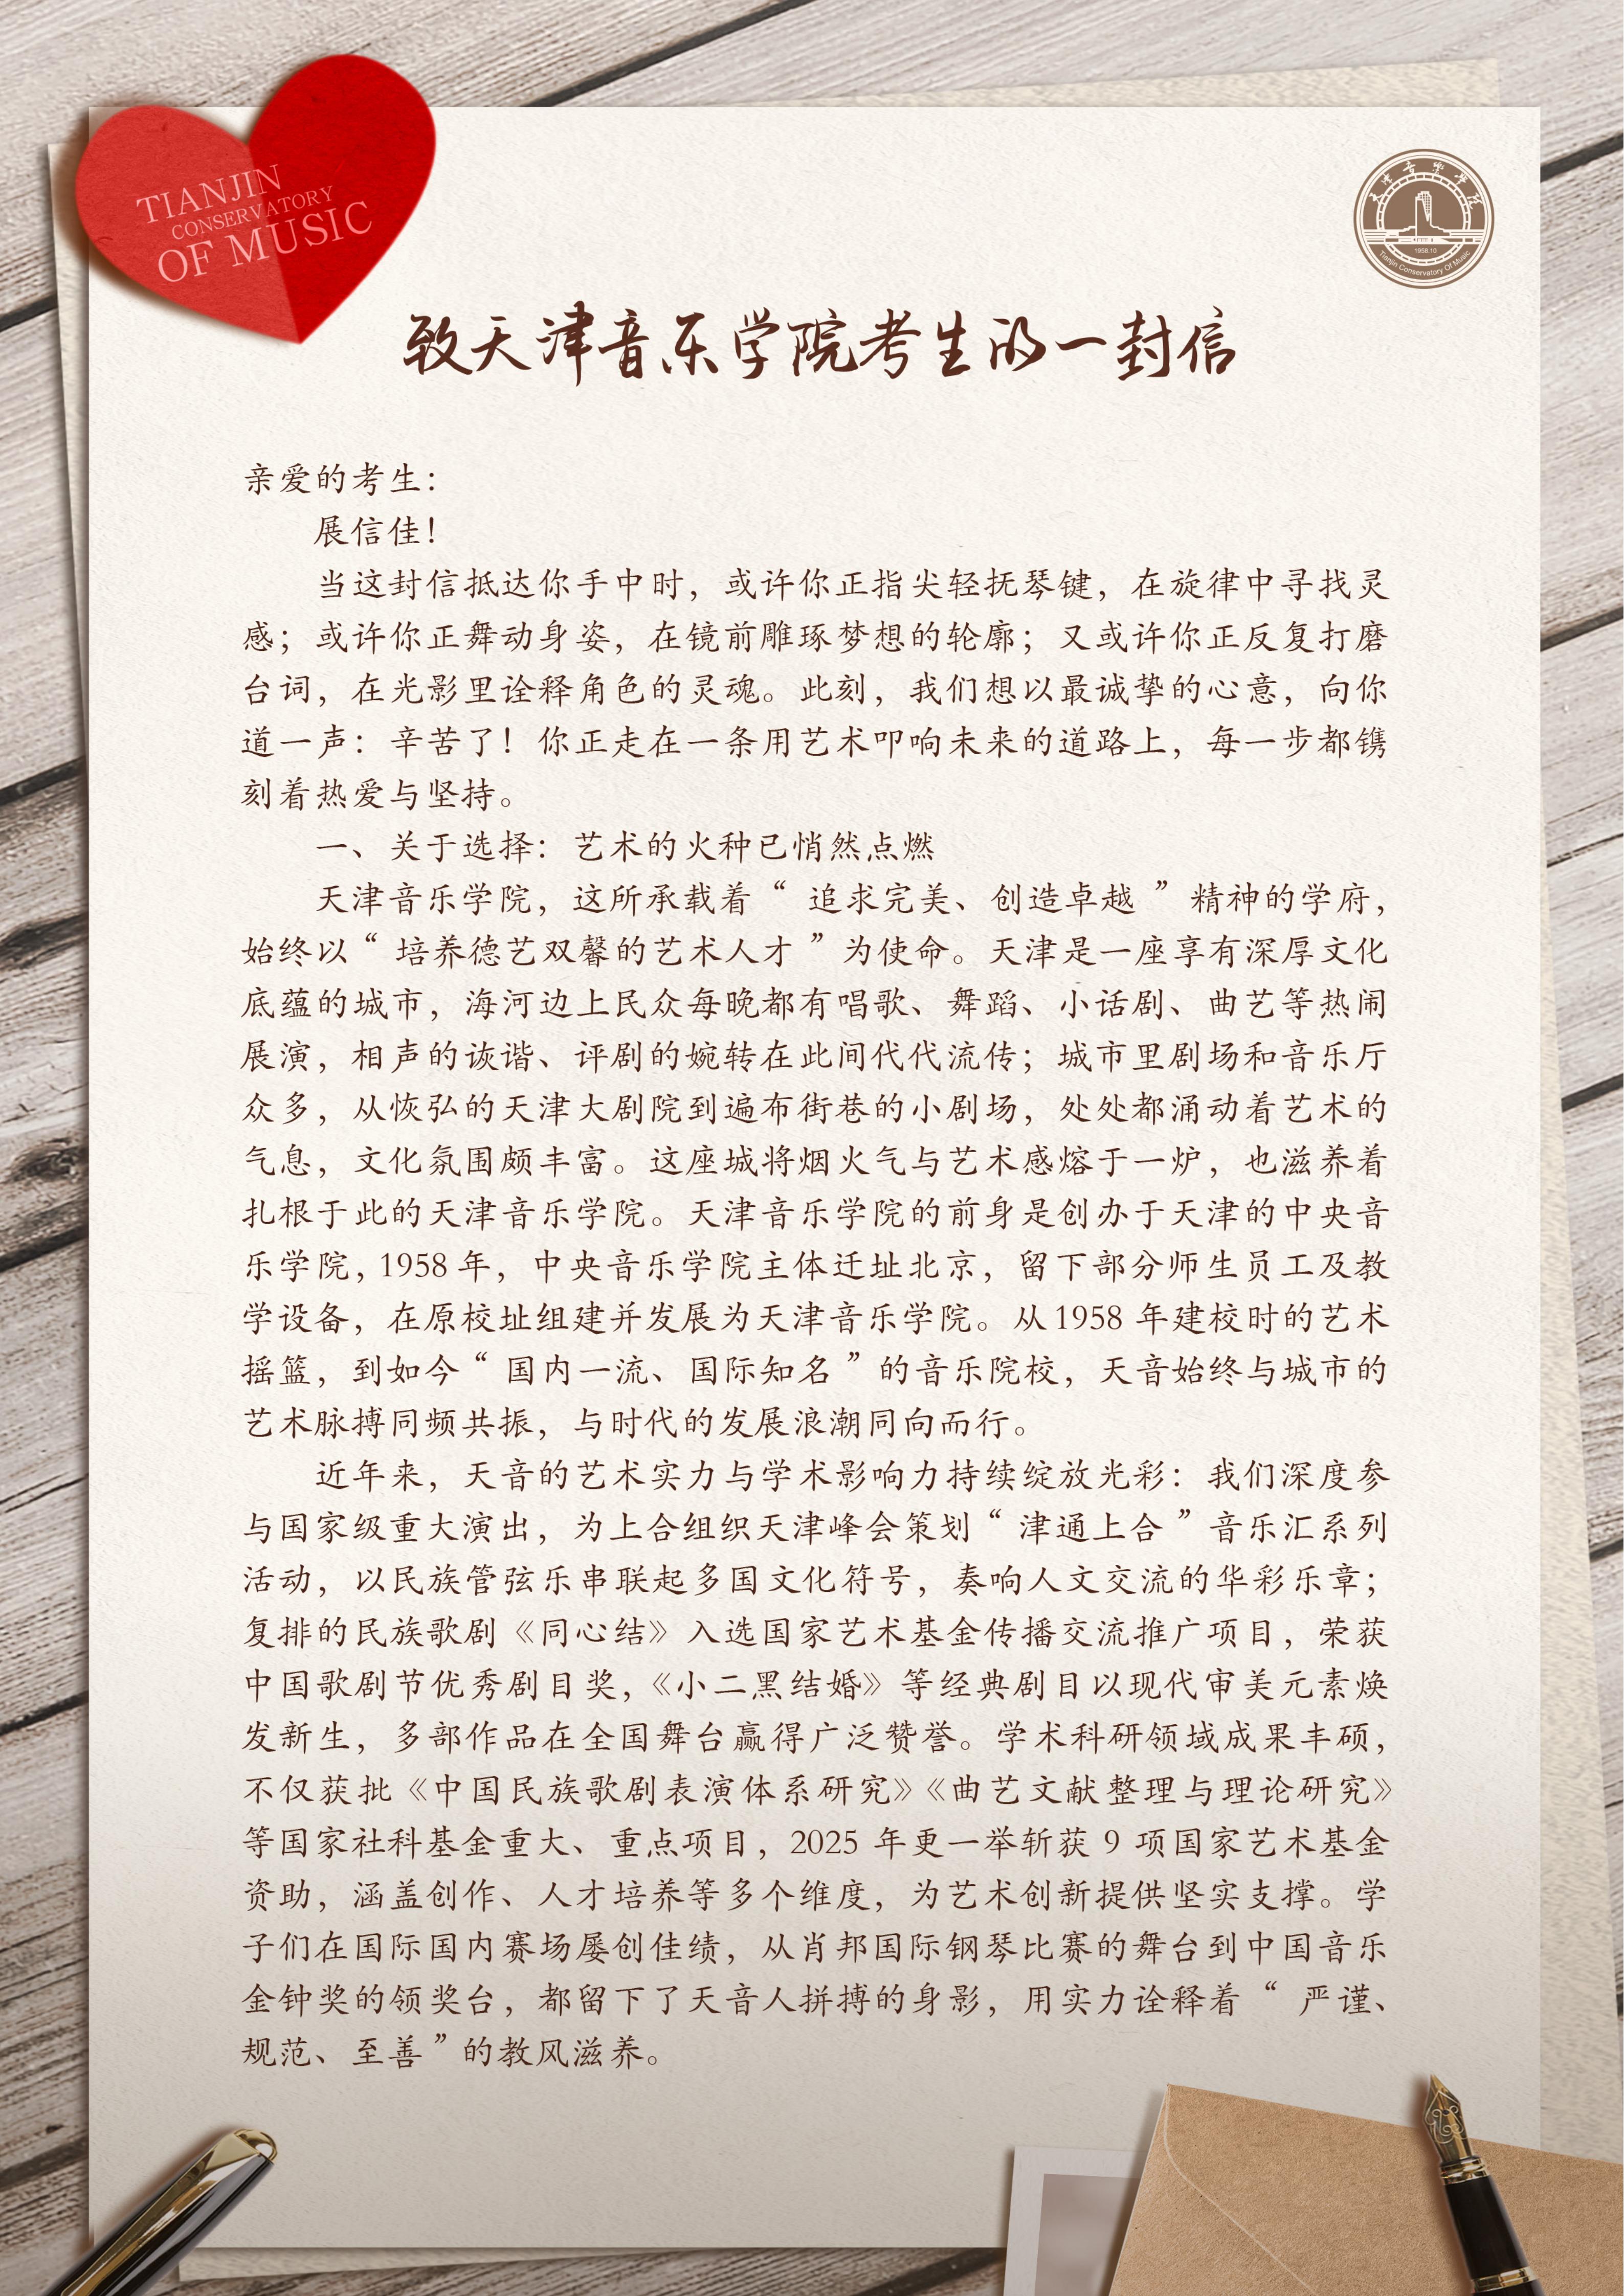 TIANJIN
CONSERVATORY
OF MUSIC
天津音乐学院
1958.10
Tianjin Conservatory Of Music
致天津音乐学院考生的一封信
亲爱的考生：
展信佳！
当这封信抵达你手中时，或许你正指尖轻抚琴键，在旋律中寻找灵
感；或许你正舞动身姿，在镜前雕琢梦想的轮廓；又或许你正反复打磨
台词，在光影里诠释角色的灵魂。此刻，我们想以最诚挚的心意，向你
道一声：辛苦了！你正走在一条用艺术叩响未来的道路上，每一步都镌
刻着热爱与坚持。
一、关于选择：艺术的火种已悄然点燃
天津音乐学院，这所承载着“追求完美、创造卓越”精神的学府，
始终以“培养德艺双馨的艺术人才”为使命。天津是一座享有深厚文化
底蕴的城市，海河边上民众每晚都有唱歌、舞蹈、小话剧、曲艺等热闹
展演，相声的诙谐、评剧的婉转在此间代代流传；城市里剧场和音乐厅
众多，从恢弘的天津大剧院到遍布街巷的小剧场，处处都涌动着艺术的
气息，文化氛围颇丰富。这座城将烟火气与艺术感熔于一炉，也滋养着
扎根于此的天津音乐学院。天津音乐学院的前身是创办于天津的中央音
乐学院，1958 年，中央音乐学院主体迁址北京，留下部分师生员工及教
学设备，在原校址组建并发展为天津音乐学院。从1958 年建校时的艺术
摇篮，到如今“国内一流、国际知名”的音乐院校，天音始终与城市的
艺术脉搏同频共振，与时代的发展浪潮同向而行。
近年来，天音的艺术实力与学术影响力持续绽放光彩：我们深度参
与国家级重大演出，为上合组织天津峰会策划“津通上合”音乐汇系列
活动，以民族管弦乐串联起多国文化符号，奏响人文交流的华彩乐章；
复排的民族歌剧《同心结》入选国家艺术基金传播交流推广项目，荣获
中国歌剧节优秀剧目奖，《小二黑结婚》等经典剧目以现代审美元素焕
发新生，多部作品在全国舞台赢得广泛赞誉。学术科研领域成果丰硕，
不仅获批《中国民族歌剧表演体系研究》《曲艺文献整理与理论研究》
等国家社科基金重大、重点项目，2025 年更一举斩获 9 项国家艺术基金
资助，涵盖创作、人才培养等多个维度，为艺术创新提供坚实支撑。学
子们在国际国内赛场屡创佳绩，从肖邦国际钢琴比赛的舞台到中国音乐
金钟奖的领奖台，都留下了天音人拼搏的身影，用实力诠释着“严谨、
规范、至善”的教风滋养。